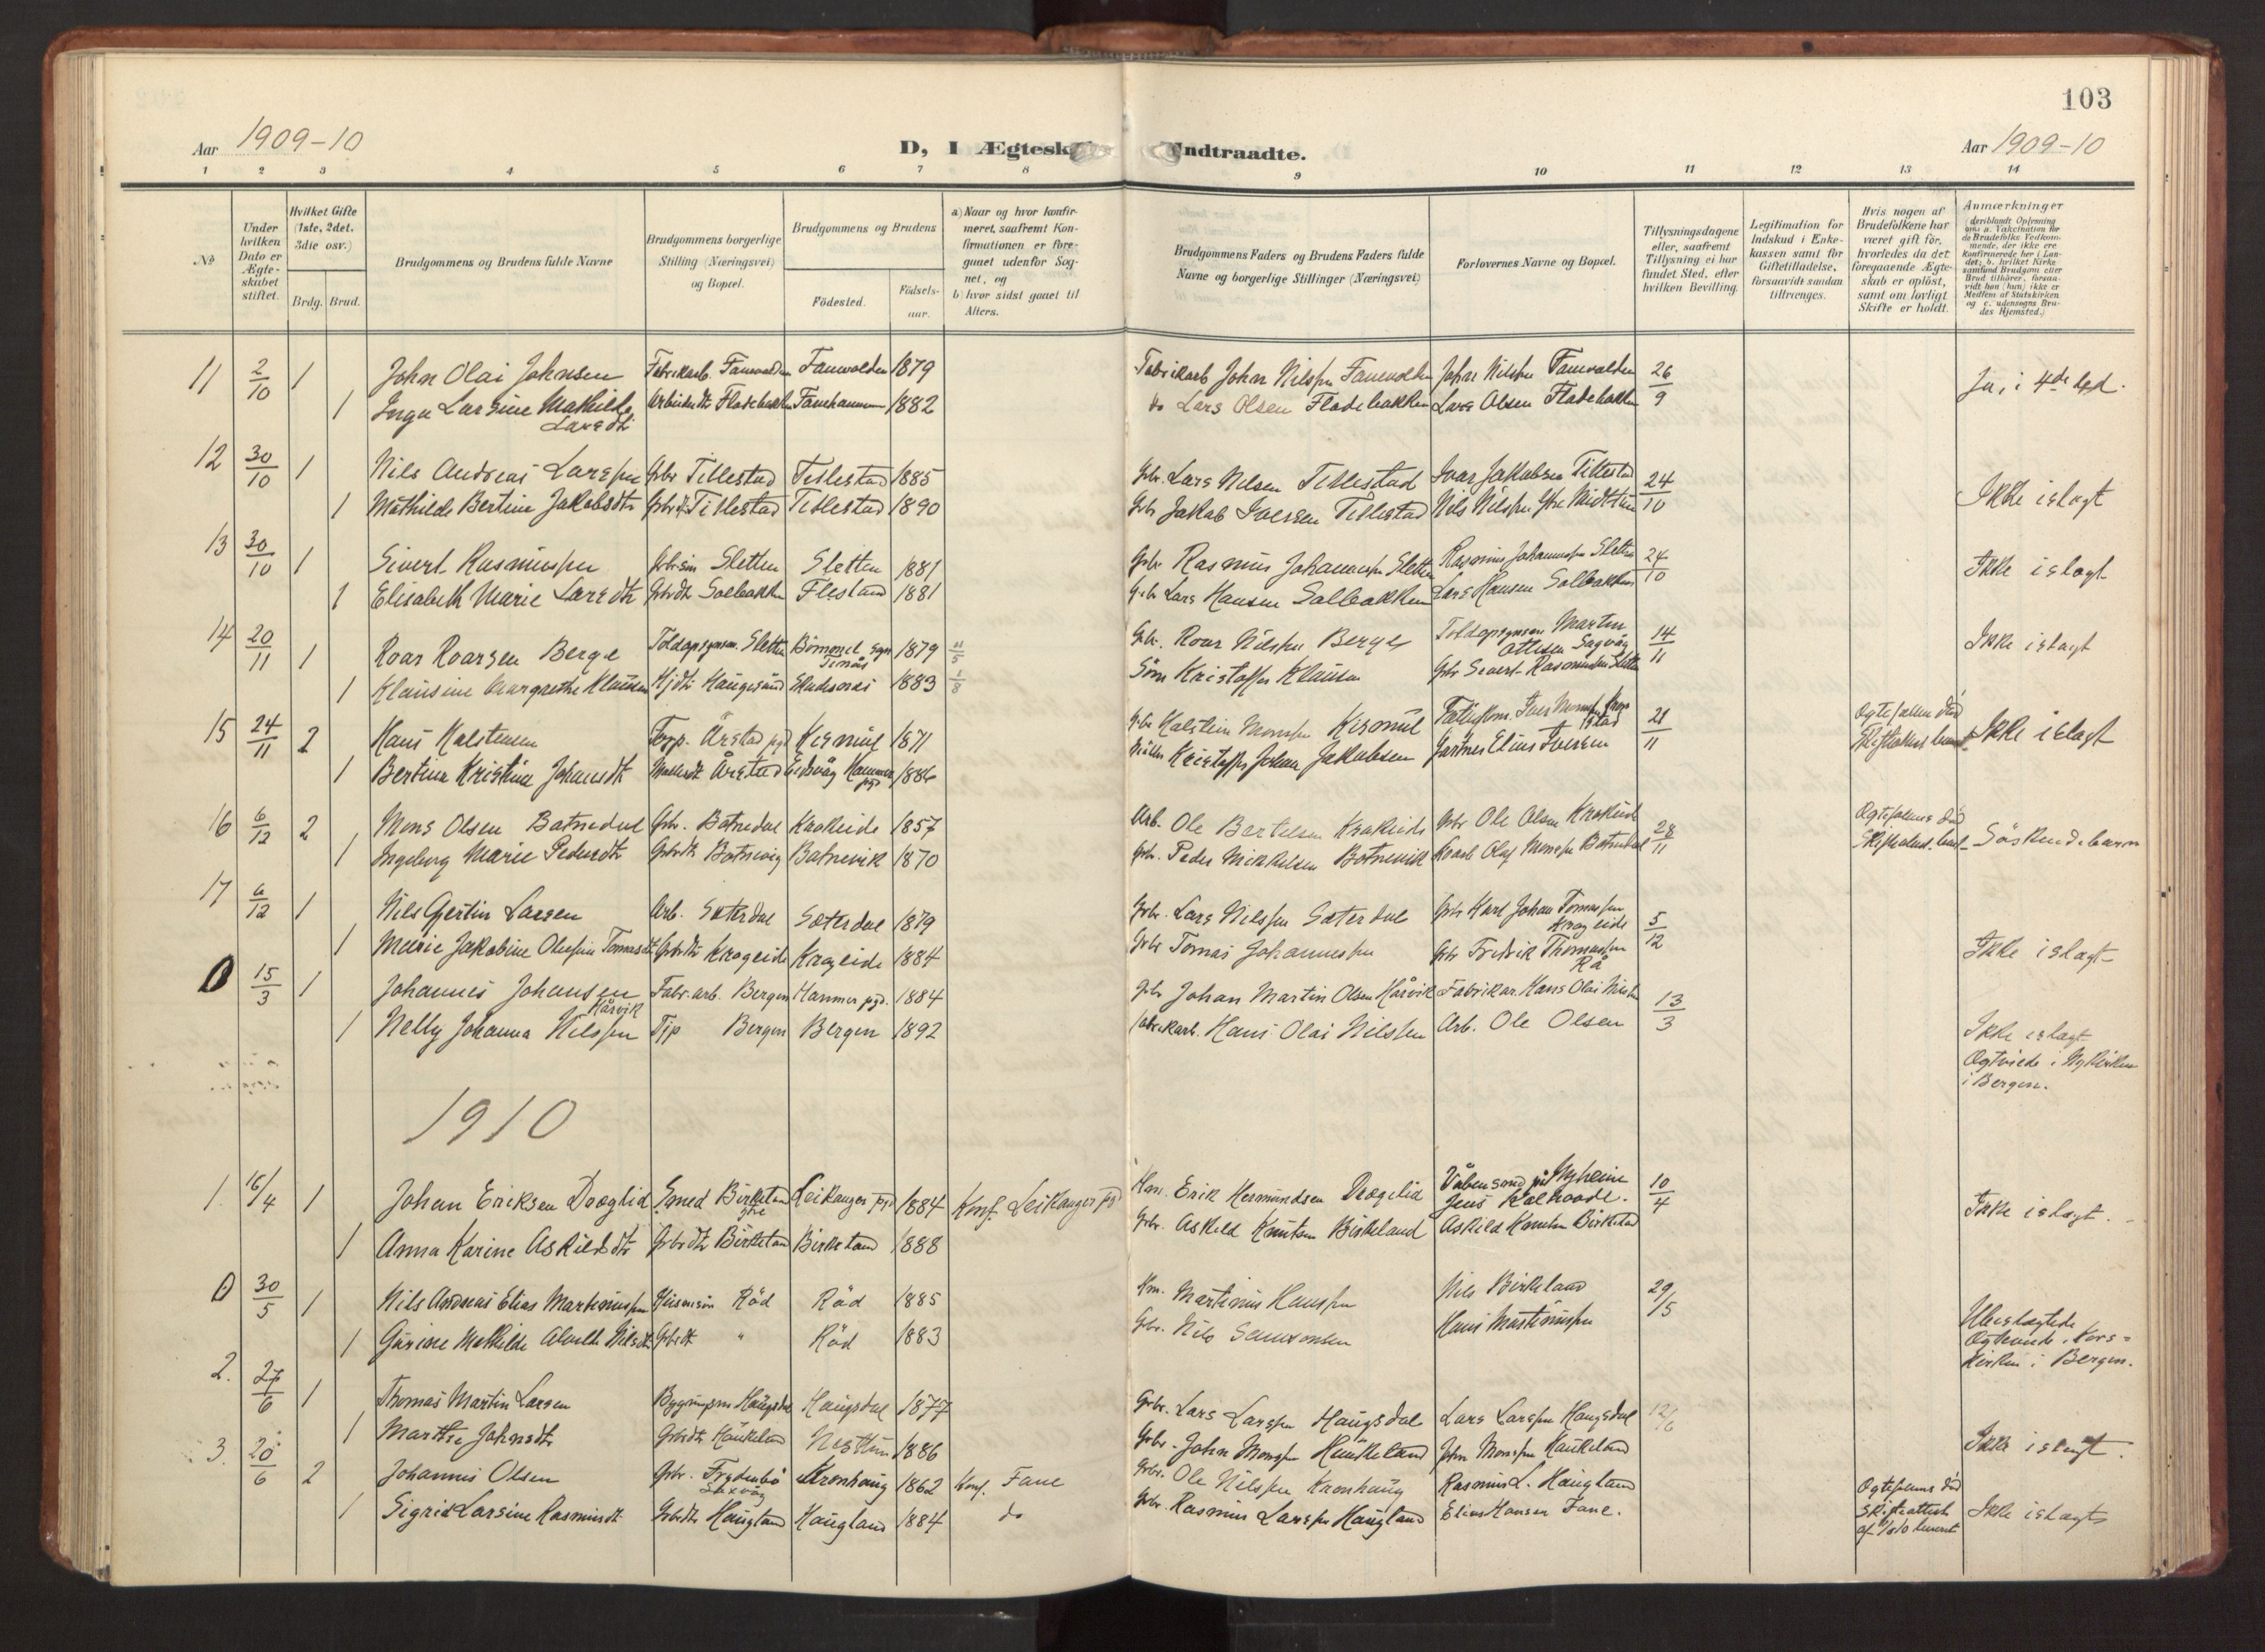 103
Aar 1909-10
D, I Ægtesk
Indtraadte.
Aar 1909-10
1 2 3 4 5 6 7 8 9 10 11 12 13 14
No
Under hvilken Dato er Ægte-skabet stiftet.
Hvilket Gifte (1ste, 2det. 3die osv.)
Brdg. Brud.
Brudgommens og Brudens fulde Navne
Brudgommens borgerlige Stilling (Næringsvei) og Bopæl.
Brudgommens og Brudens
Födested.
Födsels-aar.
a) Naar og hvor konfir-meret, saafremt Kon-firmationen er fore-gaaet udenfor Sog-net, og
b) hvor sidst gaaet til Alters.
Brudgommens Faders og Brudens Faders fulde Navne og borgerlige Stillinger (Næringsvei)
Forlovernes Navne og Bopæl.
Tillysningsdagene eller, saafremt Tillysning ei har fundet Sted, efter hvilken Bevilling.
Legitimation for Indskud i Enke-kassen samt for Giftetilladelse, forsaavidt saadan tiltrænges.
Hvis nogen af Brudefolkene har været gift för, hvorledes da det foregaaende Ægte-skab er oplöst, samt om lovligt Skifte er holdt.
Anmærkninger
11 2/10 1 John Olai Johnsen Fabrikarb. Fanevolden Fanevolden 1879 Fabrikarb John Nilssen Fanevolden John Nilssen Fanevolden 26/9 Ja, i 4de led.
1 Inga Larsine Mathilde Larsdtr Arbeiderdtr Fladebakken Fanehammeren 1882 do Lars Olsen Fladebakken Lars Olsen Fladebakken
12 30/10 1 Nils Andreas Larssen Gbr Titlestad Titlestad 1885 Gbr. Lars Nilsen Titlestad Ivar Jakobsen Titlestad 24/10 Ikke i slægt
1 Mathilde Bertine Jakobsdtr Gbrdtr Titlestad Titlestad 1890 Gbr Jakob Iversen Titlestad Nils Nilssen Midttun
13 30/10 1 Sivert Rasmussen Gbrsøn Sletten Sletten 1881 Gbr Rasmus Johannessen Sletten Rasmus Johannessen Sletten 24/10 Ikke i slægt
1 Elisabeth Marie Larsdtr Gbrdtr Solbakken Flesland 1881 Gbr Lars Hansen Solbakken Lars Hansen Solbakken
14 20/11 1 Roar Roarsen Berge Toldopsynsm. Sletten Bömmel sogn 1879 11/5 Gbr. Roar Nilssen Berge Toldopsynsm Martin Ottesen Sagvåg 14/11 Ikke i slægt
1 Klausine Margrethe Klausen Hjdtr Haugesund Skudesnes 1883 1/8 Söm Kristoffer Klausen Gbr Sivert Rasmussen Sletten
15 24/11 2 Hans Halstensen Årstad pgd Kismul 1871 Gbr Halstein Monssen Kismul 21/11 Ægtefællen död Ikke i slægt
1 Bertina Kristine Johansdtr Årstad Eidsvåg Hammer pgd 1886 Kristoffer Johan Jakobsen Gartner Elius Iversen
16 6/12 2 Mons Olsen Botnedal Gbr. Botnedal Krokeide 1857 Arb. Ole Bertelsen Krokeide Gbr Ole Olsen Krokeide 28/11 Ægtefællens död Söskendebarn
1 Ingeborg Marie Pedersdtr Gbrdtr Botnevig Botnevik 1870 Gbr. Peder Mikkelsen Botnevik Olaf Monssen Botnedal
17 6/12 1 Nils Gjertin Larsen Arb. Sæterdal Sæterdal 1879 Gbr. Lars Nilssen Sæterdal Gbr Karl Johan Tomassen Krogeide 5/12 Ikke i slægt
1 Marie Jakobine Olufine Tomasdtr Gbrdtr Krogeide Krogeide 1884 Gbr Tomas Johannessen Gbr Fredrik Thomassen Rå
0 15/3 1 Johannes Johansen Hårvik Fabr.arb. Bergen Hammer pgd. 1884 Gbr Johan Martin Olsen Hårvik Fabrikar. Hans Olai Nilssen 13/3
1 Nelly Johanna Nilssen Tjp Bergen Bergen 1892 Fabrikarb. Hans Olai Nilssen Arb. Ole Olsen Ikke i slægt
Ægtviede i Nykirken
i Bergen.
1910
1 16/4 1 Johan Eriksen Dræglid Smed Birkeland Leikanger pgd 1884 Konf. Leikanger pgd Hm. Erik Hermundsen Drægelid Våbensmed på Nyheim Jens 10/4 Ikke i slægt.
1 Anna Karine Askildsdtr Gbrdtr Birkeland Birkeland 1888 Gbr. Askild Knutsen Birkeland Askild Knutsen Birkeland
0 30/5 1 Nils Andreas Elias Martinussen Husmsøn Röd Röd 1885 Hm. Martinus Hanssen Nils Birkeland 29/5
1 Gurine Mathilde Nilsdtr Gbrdtr " Röd 1883 Gbr. Nils Samsonsen Hans Martinussen Ubeslægtede
Ægteviede i Kors=
kirken i Bergen.
2. 27/6 1 Thomas Martin Larsen Haugsdal Haugsdal 1877 Gbr. Lars Larssen Haugsdal Lars Larssen Haugsdal 12/6
1 Marthe Johnsdtr Gbrdtr Haukeland Nesttun 1886 Gbr. John Monssen Haukeland John Monssen Haukeland Ikke i slægt.
3. 20/6 2 Johannes Olsen Gbr. Frydenbö Kronhaug 1862 Konf. Fane Gbr. Ole Nilssen Kronhaug Rasmus L. Haugland Ægtefællens död
1 Sigrid Larsine Rasmusdtr Gbrdtr Haugland Haugland 1884 do Gbr. Rasmus Larssen Haugland Elias Hansen Fane. Skifteattest Ikke i slægt